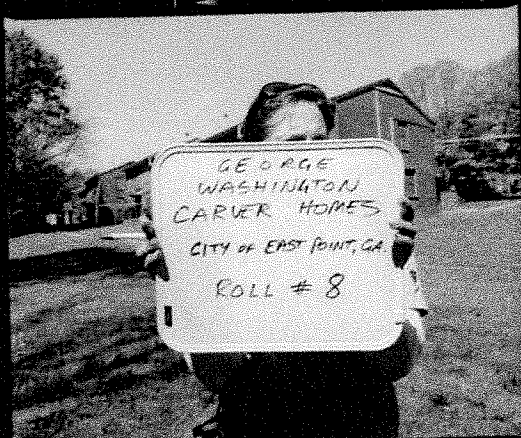 GEORGE
WASHINGTON
CARVER HOMES
CITY OF EAST POINT, GA.
ROLL # 8